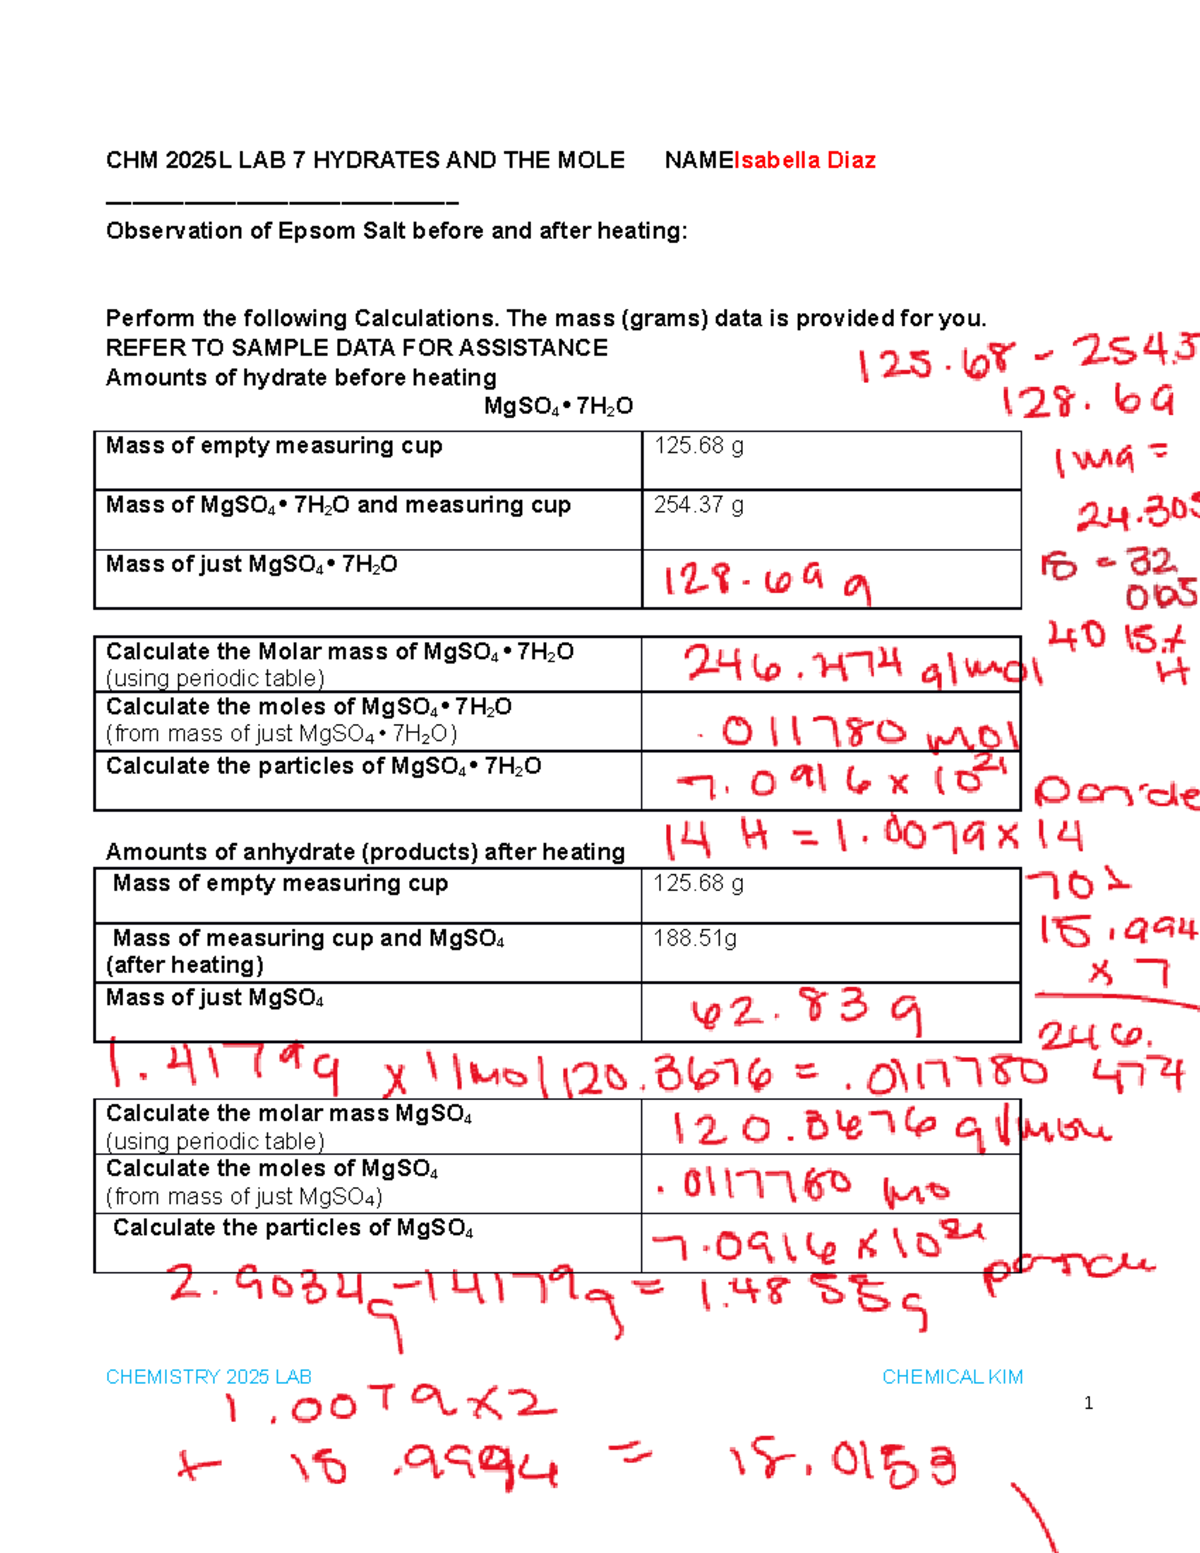 CHM 2025L LAB 7 HYDRATES AND THE MOLE NAMEIsabella Diaz
___________________________
Observation of Epsom Salt before and after heating:
Perform the following Calculations. The mass (grams) data is provided for you.
REFER TO SAMPLE DATA FOR ASSISTANCE
125.68 - 254.3
Amounts of hydrate before heating
MgSO₄ • 7H₂O
128.69
Mass of empty measuring cup 125.68 g
1 mg =
Mass of MgSO₄ • 7H₂O and measuring cup 254.37 g
24.305
Mass of just MgSO₄ • 7H₂O 128.69 g
= 32
065
Calculate the Molar mass of MgSO₄ • 7H₂O 246.474 g/mol
(using periodic table)
40 15.
H
Calculate the moles of MgSO₄ • 7H₂O .011780 mol
(from mass of just MgSO₄ • 7H₂O)
Calculate the particles of MgSO₄ • 7H₂O 7.0916 x 10²¹
14 H = 1.0079 x 14
Amounts of anhydrate (products) after heating
Mass of empty measuring cup 125.68 g
Mass of measuring cup and MgSO₄ 188.51g
(after heating)
15.994
x 7
Mass of just MgSO₄ 62.83 g
246.
474
1.4179g x 1 mol 120.3676 = .0117780
Calculate the molar mass MgSO₄ 120.3676 g/mol
(using periodic table)
Calculate the moles of MgSO₄ .0117780 mo
(from mass of just MgSO₄)
Calculate the particles of MgSO₄ 7.0916 x 10²¹
2.9034g - 14179g = 1.4855g
CHEMISTRY 2025 LAB CHEMICAL KIM
1
1.0079 x 2
+ 15.9994 = 18.0153